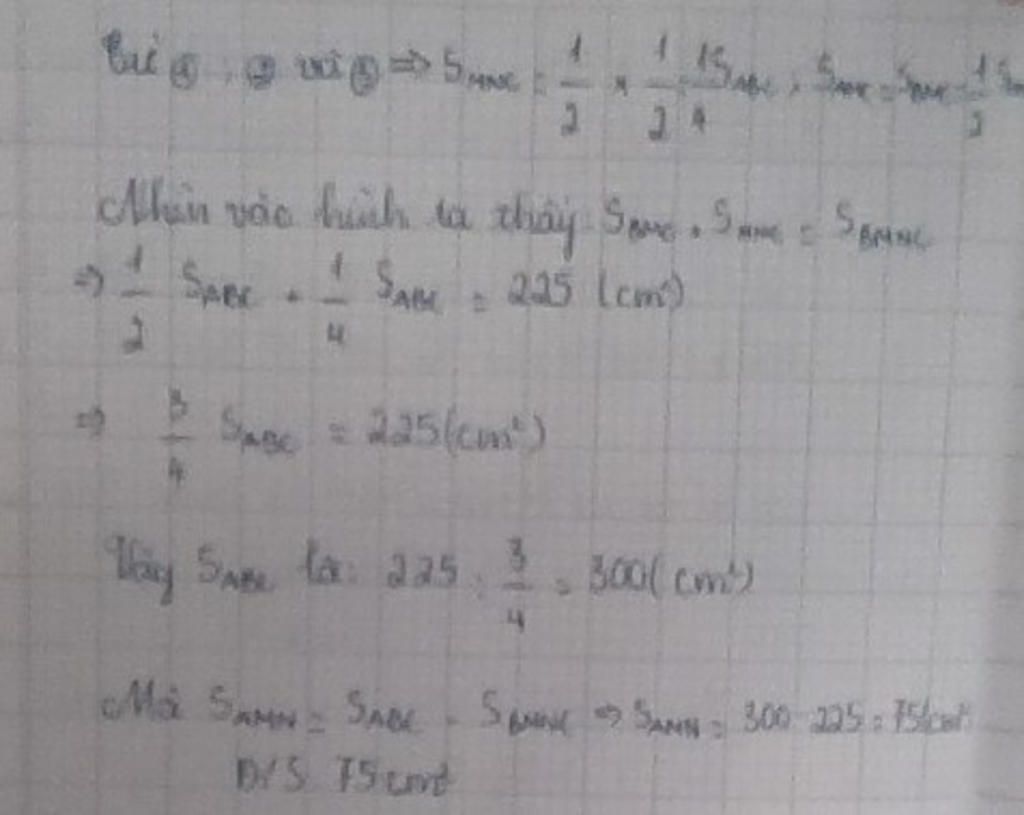 Từ ①, ② và ③ ⇒ S_MNC = 1/2 × 1/2 = 1/4 S_ABC, = 1/2
Nhìn vào hình ta thấy S_BMC + S_MNC = S_BMNC
⇒ 1/2 S_ABC + 1/4 S_ABC = 225 (cm²)
⇒ 3/4 S_ABC = 225 (cm²)
Vậy S_ABC là: 225 : 3/4 = 300 (cm²)
Mà S_AMN = S_ABC - S_BMNC ⇒ S_AMN = 300 - 225 = 75 (cm²
Đ/S 75 cm²